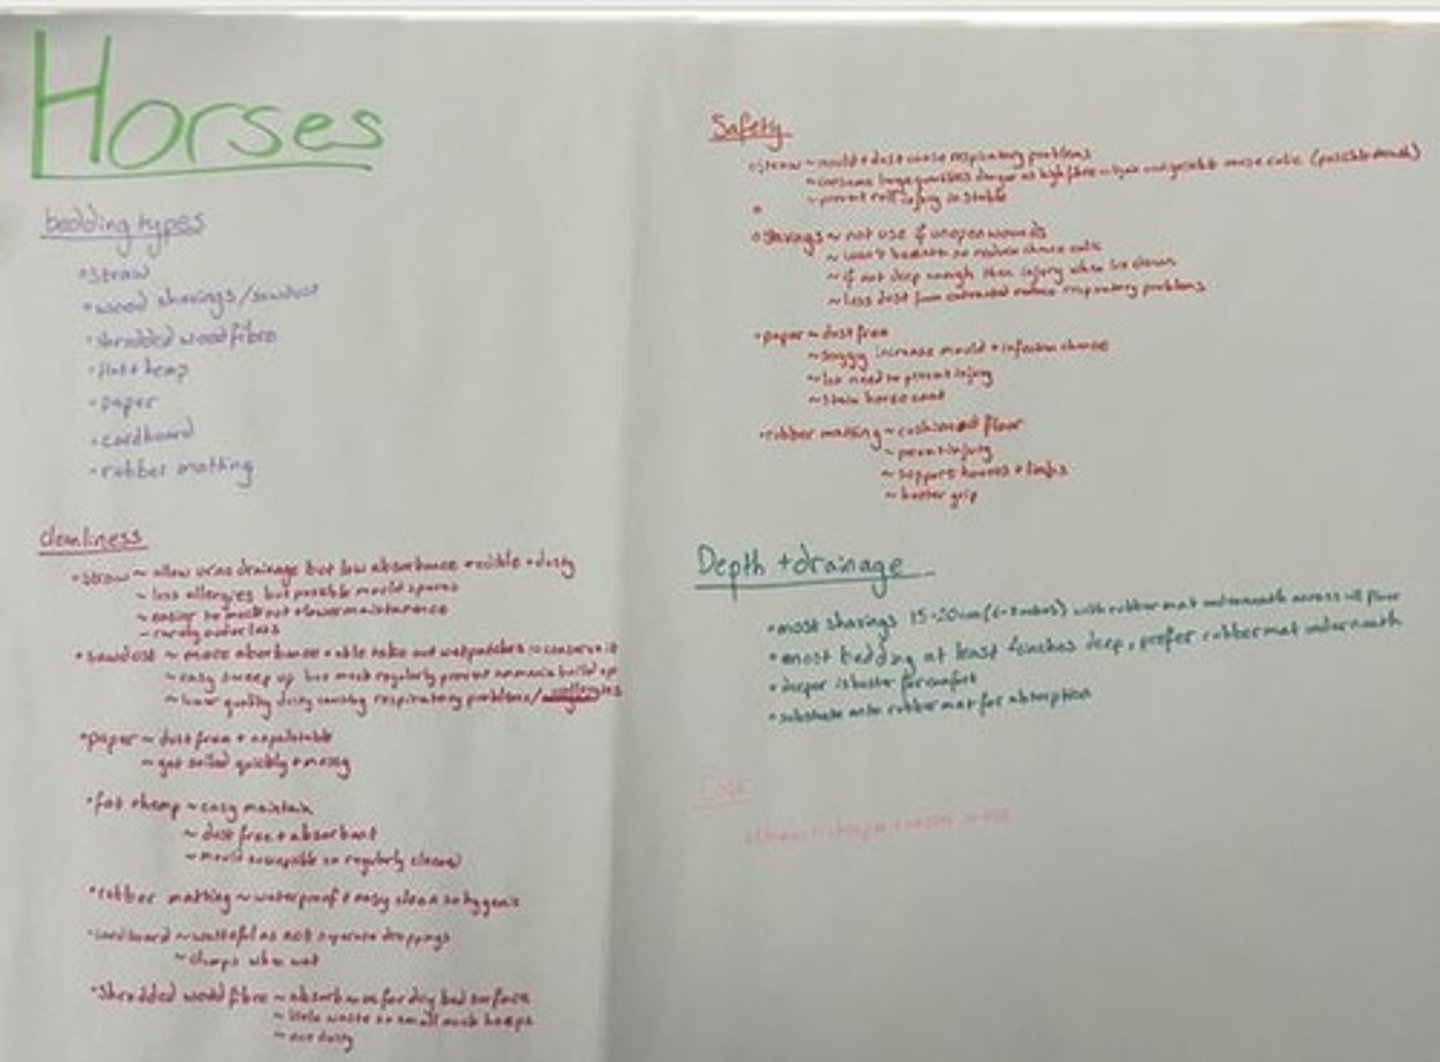 Horses
bedding types
• straw
• wood shavings/sawdust
• shredded wood fibre
• hemp
• paper
• cardboard
• rubber matting
cleanliness
• straw ~ allow urine drainage but low absorbance + edible + dusty
~ less allergies but possible mould spores
~ easier to muck out + lower maintenance
~ rarely odorless
• sawdust ~ more absorbance + able take out wet patches to conserve it
~ easy sweep up but must regularly prevent ammonia build up
~ lower quality dusty causing respiratory problems/
• paper ~ dust free + unpalatable
~ get soiled quickly + messy
• hemp ~ easy maintain
~ dust free + absorbant
~ mould so regularly cleaned
• rubber matting ~ waterproof + easy clean so hygenic
• cardboard ~ wasteful as not separate droppings
~ clumps when wet
• Shredded wood fibre ~ absorbance for dry bed surface
~ little waste so small muck heaps
~ dusty
Safety
• straw ~ mould + dust cause respiratory problems
~ consume large quantities danger as high fibre cause colic (possible death)
~ prevent injury in stable
•
• shavings ~ not use if open wounds
~ won't be eaten so reduce chance colic
~ if not deep enough then injury when lie down
~ less dust from extracted reduce respiratory problems
• paper ~ dust free
~ soggy increase mould + infection chance
~ lot need to prevent injury
~ stain horse coat
• rubber matting ~ cushioned floor
~ prevent injury
~ support hooves + limbs
~ better grip
Depth + drainage
• most shavings 15-20cm (6-8 inches) with rubber mat underneath across floor
• most bedding at least inches deep, prefer rubber mat underneath
• deeper is better for comfort
• substrate onto rubber mat for absorption
Cost